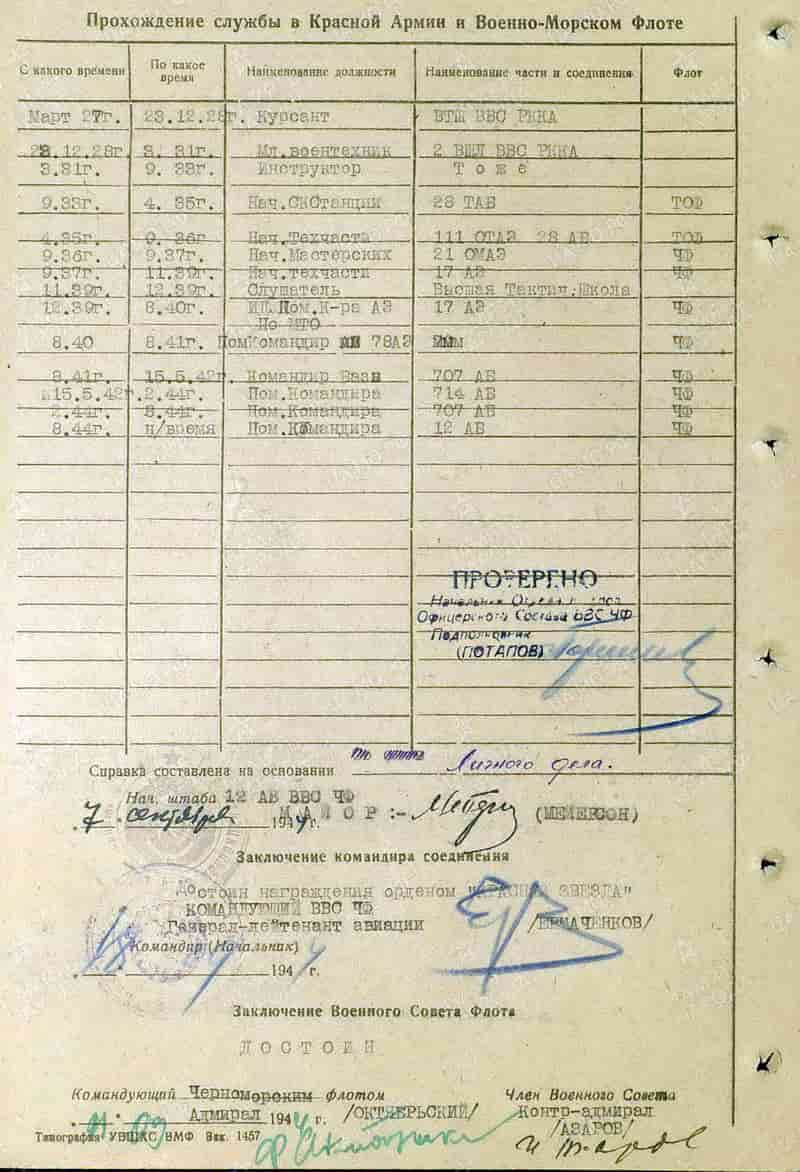 Прохождение службы в Красной Армии и Военно-Морском Флоте
С какого времени По какое время Наименование должности Наименование части и соединения Флот
Март 27г. 23.12.28г. Курсант ВТШ ВВС РККА
23.12.28г. 3. 31г. Мл.воентехник 2 ВШЛ ВВС РККА
3.31г. 9. 33г. Инструктор Т о ж е
9.33г. 4. 35г. Нач.СКСтанции 28 ТАБ ТОФ
4.35г. 9. 36г Нач.Техчаста 111 ОТАЭ 28 АБ ТОФ
9.36г. 9.37г. Нач.Мастерских 21 ОМАЭ ЧФ
9.37г. 11.39г. Нач.техчасти 17 АЭ ЧФ
11.39г. 12.39г. Слушатель Высшая Тактич.Школа
12.39г. 8.40г. Пом.К-ра АЭ 17 АЭ ЧФ
По МТО
8.40 8.41г. ПомКомандир 78АЭ ЧФ
8.41г. 15.5.42г. Командир Базы 707 АБ ЧФ
15.5.42г. 2.44г. Пом.Командира 714 АБ ЧФ
2.44г. 8.44г. Пом.Командира 707 АБ ЧФ
8.44г. н/время Пом.Командира 12 АБ ЧФ
ПРОВЕРЕНО
Начальник Отдела
Офицерского Состава ВВС ЧФ
Подполковник
(ПОТАПОВ)
Справка составлена на основании Личного дела.
Нач. штаба 12 АБ ВВС ЧФ
„7„ сентября 1944г. М А Й О Р :- (МЕЙЕРСОН)
Заключение командира соединения
Достоин награждения орденом "КРАСНАЯ ЗВЕЗДА"
КОМАНДУЮЩИЙ ВВС ЧФ
Генерал-лейтенант авиации /ЕРМАЧЕНКОВ/
Командир (Начальник)
1944 г.
Заключение Военного Совета Флота
Д О С Т О И Н
Командующий Черноморским флотом Член Военного Совета
Адмирал 1944 г. /ОКТЯБРЬСКИЙ/ Контр-адмирал
/АЗАРОВ/
Типография УВШКС ВМФ Зак. 1457